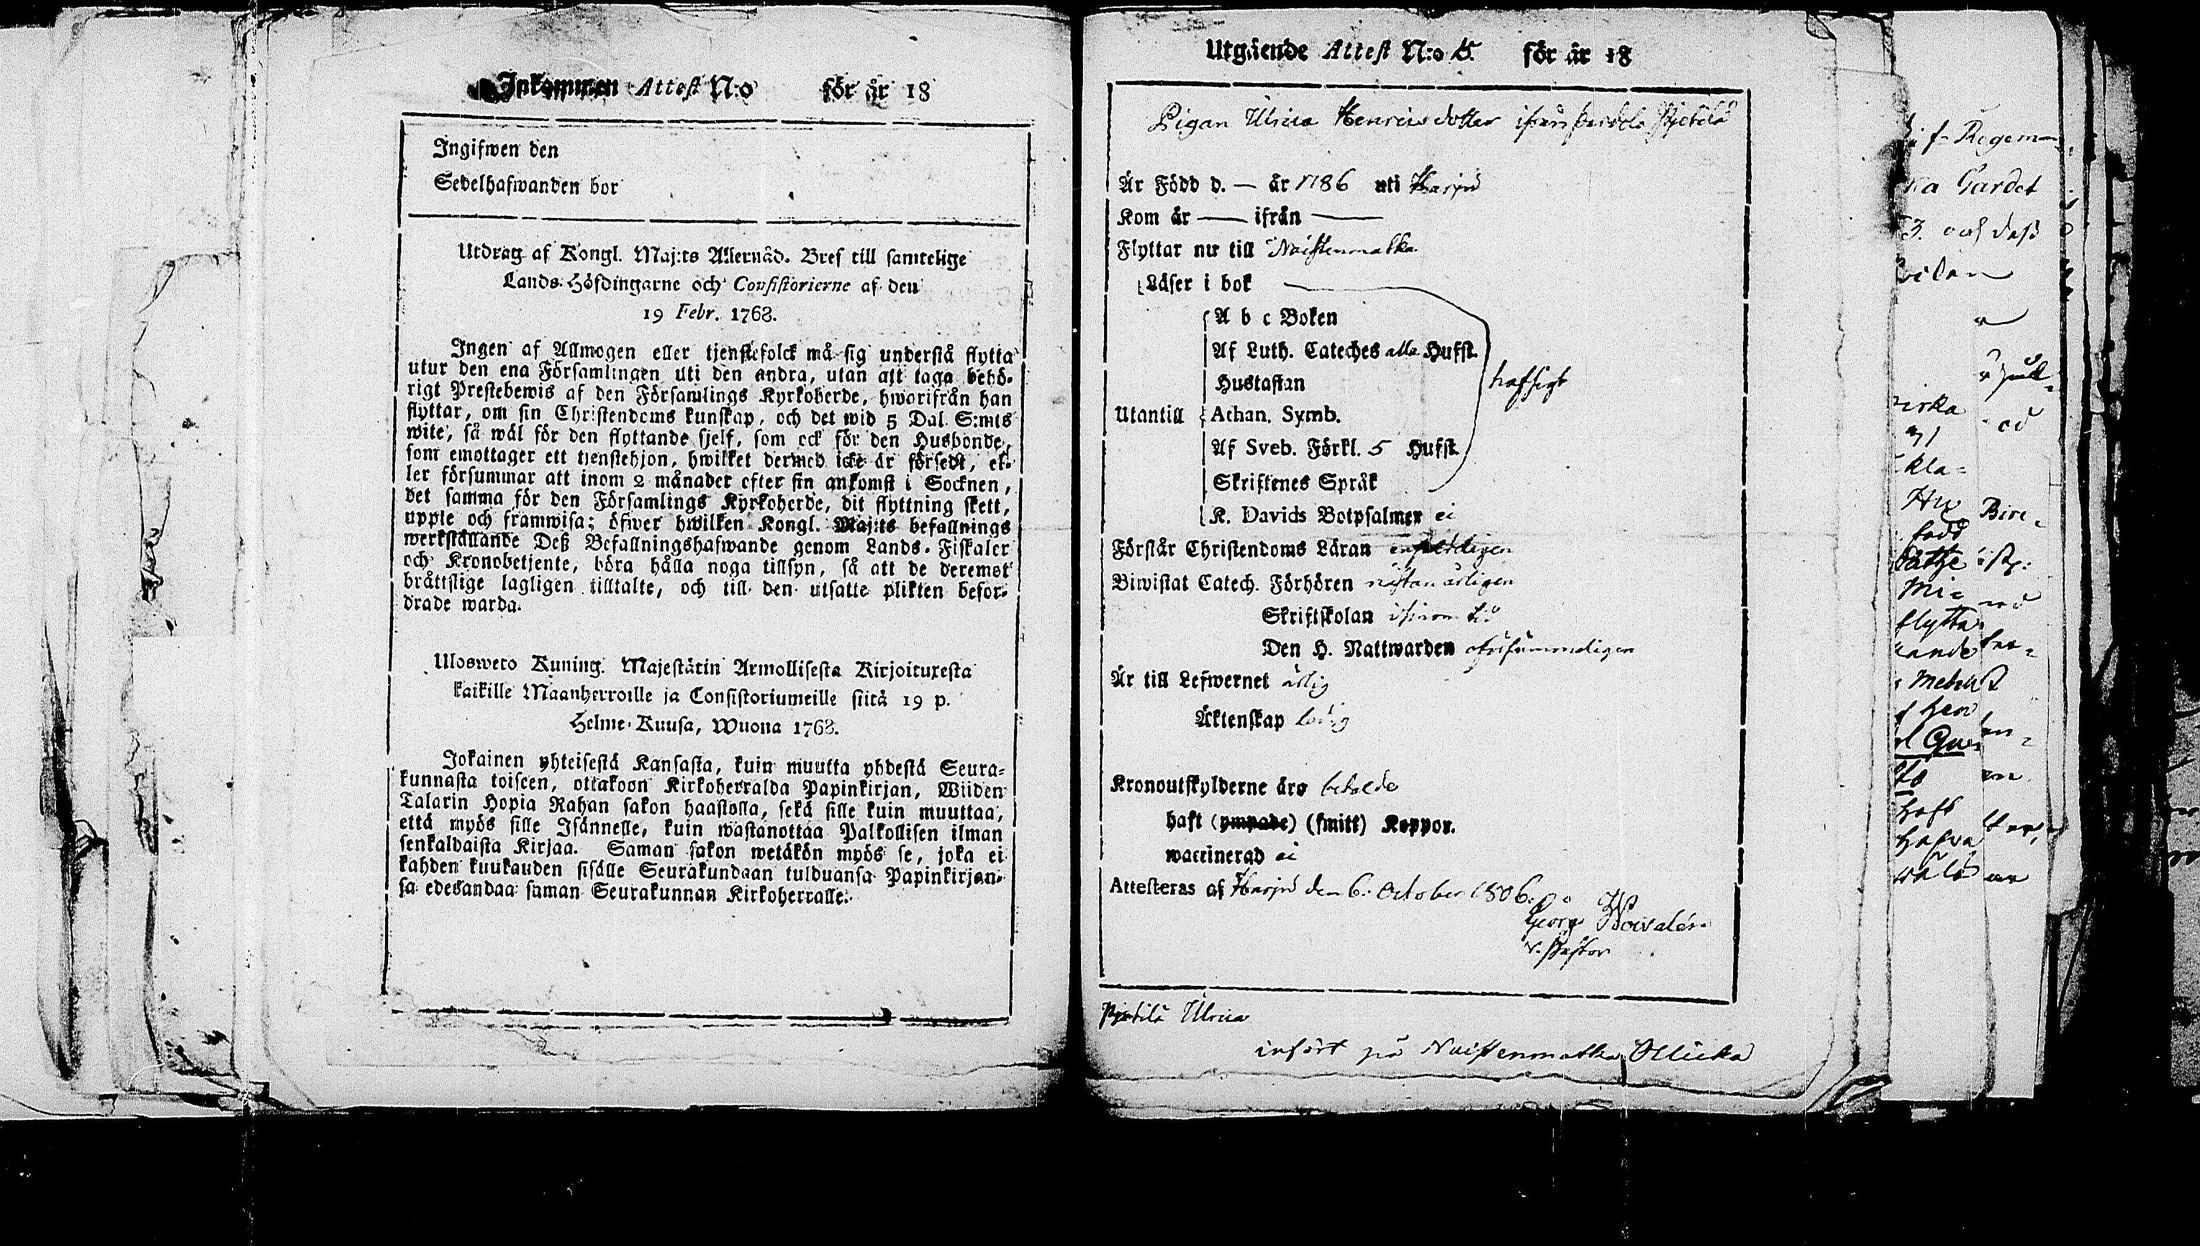 Inkommen Attest N:o för år 18
Ingifwen den
Sedelhafwanden bor
Utdrag af Kongl. Maj:ts Allernåd. Bref till samtelige
Lands-Höfdingarne och Consistorierne af den
19 Febr. 1768.
Ingen af Allmogen eller tjenstefolck må sig understå flytta
utur den ena Församlingen uti den andra, utan att taga behö-
rigt Prestebewis af den Församlings Kyrkoherde, hworifrån han
flyttar, om sin Christendoms kunskap, och det wid 5 Dal. S:mts
wite, så wäl för den flyttande sjelf, som ock för den Husbonde,
som emottager ett tjenstehjon, hwilket dermed icke är försedt, el-
ler försummar att inom 2 månader efter sin ankomst i Socknen,
det samma för den Församlings Kyrkoherde, dit flyttning skett,
uppte och framwisa; öfwer hwilken Kongl. Maj:ts befallnings
werkställande Deß Befallningshafwande genom Lands-Fiskaler
och Kronobetjente, böra hålla noga tillsyn, så att de deremot
bråttslige lagligen tilltalte, och till den utsatte plikten befor-
drade warda.
Ulosweto Kuning. Majestätin Armollisesta Kirjoituxesta
kaikille Maanherroille ja Consistoriumeille siitä 19 p.
Helme-Kuusa, Wuona 1768.
Jokainen yhteisestä Kansasta, kuin muutta yhdestä Seura-
kunnasta toiseen, ottakoon Kirkoherralda Papinkirjan, Wiiden
Talarin Hopia Rahan sakon haastolla, sekä sille kuin muuttaa,
että myös sille Isännelle, kuin wastanottaa Palkollisen ilman
senkaldaista Kirjaa. Saman sakon wetäkön myös se, joka ei
kahden kuukauden sisälle Seurakundaan tulduansa Papinkirjan-
sa edesandaa saman Seurakunnan Kirkoherralle.
Utgående Attest N:o 5. för år 18
Pigan Ulrica Henricsdotter ifrån
Är Född d. — år 1786 uti Harju
Kom år — ifrån —
Flyttar nu till Naistenmatka
Läser i bok
A b c Boken
Af Luth. Cateches alla Hufst.
Hustaflan
hafsigt
Utantill Athan. Symb.
Af Sveb. Förkl. 5 Hufst.
Skriftenes Språk
K. Davids Botpsalmer ei
Förstår Christendoms Läran enfaldigen
Biwistat Catech. Förhören nästan årligen
Skriftskolan
Den H. Nattwarden oförsummeligen
Är till Lefwernet ärlig
Äktenskap ledig
Kronoutskylderne äro betalde
haft (ympade) (smitt) Koppor.
waccinerad ei
Attesteras af Harju den 6. October 1806.
Georg
v. Pastor
Ulrica
infört på Naistenmatka Ollicka